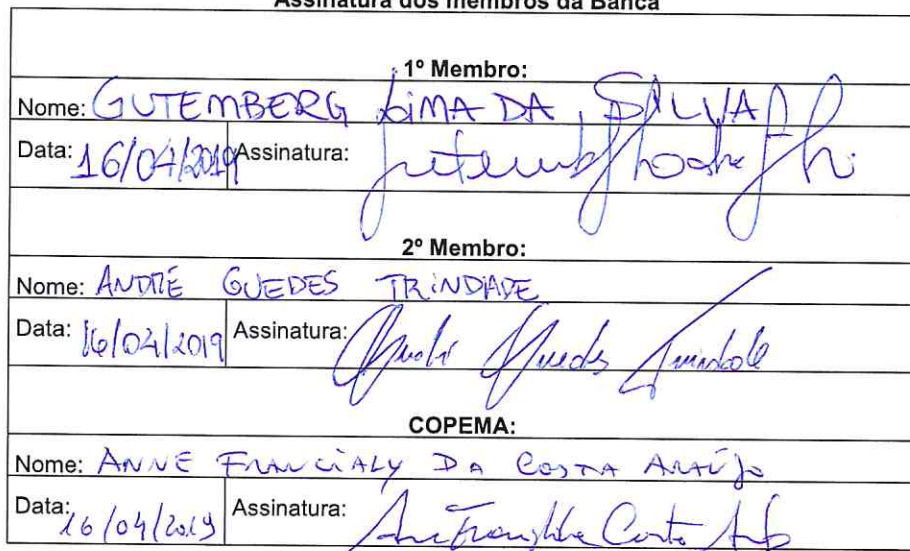 Assinatura dos membros da Banca
1º Membro:
Nome: GUTEMBERG LIMA DA SILVA
Data: 16/04/2019 Assinatura:
2º Membro:
Nome: ANDRÉ GUEDES TRINDADE
Data: 16/04/2019 Assinatura: Guedes Trindade
COPEMA:
Nome: ANNE FRANCIALY DA COSTA ARAÚJO
Data: 16/04/2019 Assinatura: